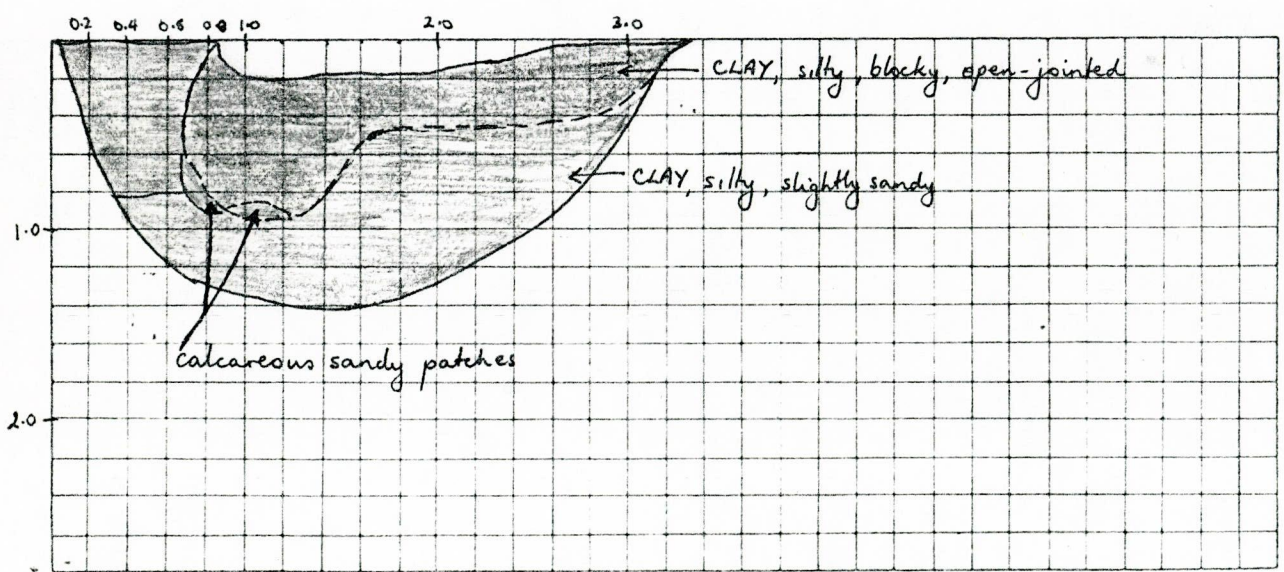 0.2 0.4 0.6 0.8 1.0 2.0 3.0
CLAY, silty, blocky, open-jointed
CLAY, silty, slightly sandy
1.0
Calcareous sandy patches
2.0